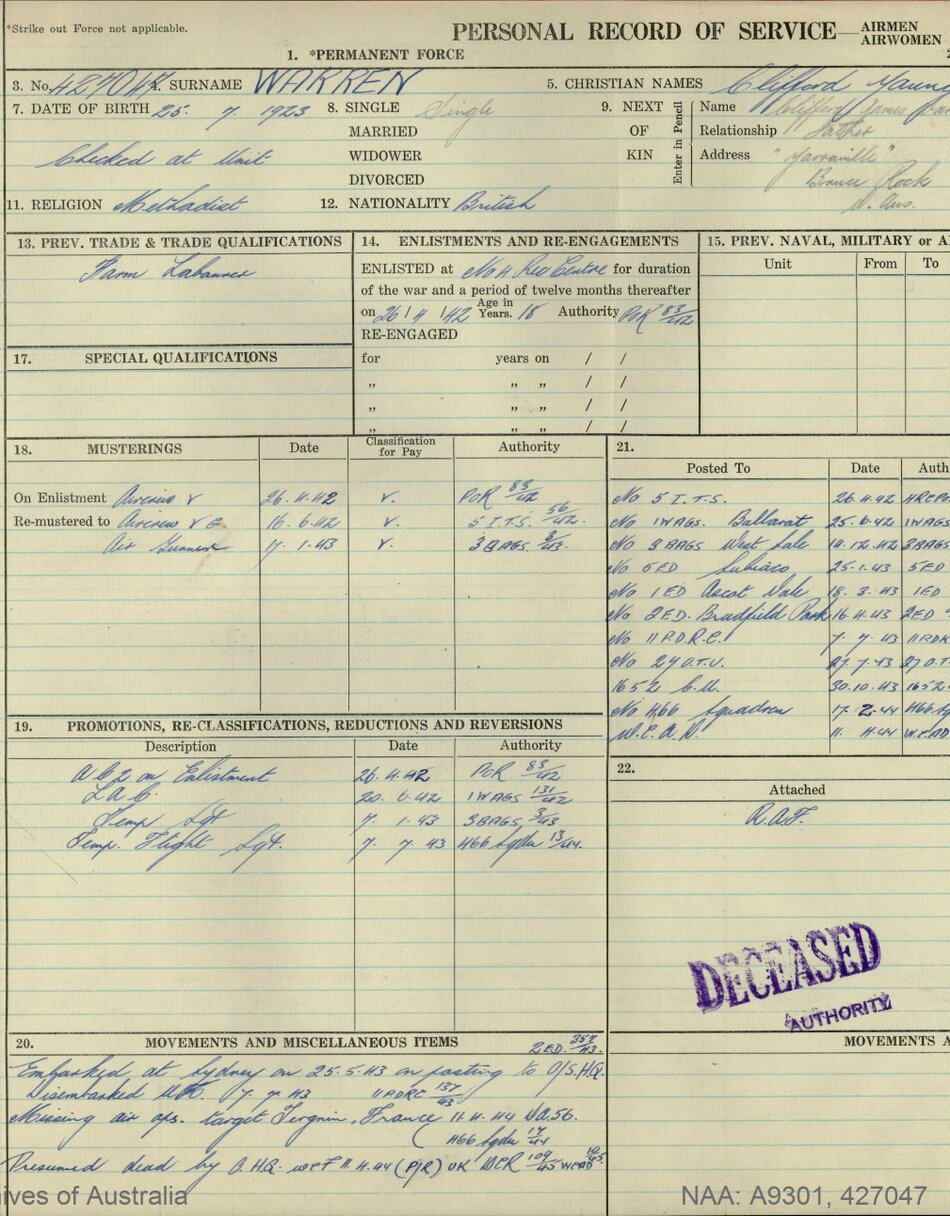 *Strike out Force not applicable.
PERSONAL RECORD OF SERVICE— AIRMEN
AIRWOMEN
1. *PERMANENT FORCE
3. No. 427047 4. SURNAME WARREN 5. CHRISTIAN NAMES Clifford Young
7. DATE OF BIRTH 25. 7. 1923 8. SINGLE Single 9. NEXT OF KIN Enter in Pencil Name Clifford James
MARRIED Relationship Father
Checked at Unit WIDOWER Address "Yarraville"
DIVORCED Bruce Rock
11. RELIGION Methodist 12. NATIONALITY British W. Aus.
13. PREV. TRADE & TRADE QUALIFICATIONS
Farm Labourer
14. ENLISTMENTS AND RE-ENGAGEMENTS
ENLISTED at No 4 Rec Centre for duration
of the war and a period of twelve months thereafter
on 26/4/42 Age in Years. 18 Authority POR 83/42
RE-ENGAGED
for years on / /
,, ,, ,, / /
,, ,, ,, / /
,, ,, ,, / /
15. PREV. NAVAL, MILITARY or
Unit From To
17. SPECIAL QUALIFICATIONS
18. MUSTERINGS Date Classification for Pay Authority
On Enlistment Aircrew V 26.4.42 V. POR 83/42
Re-mustered to Aircrew V G 16.6.42 V. 5 I.T.S. 56/42.
Air Gunner 7.1.43 V. 3 BAGS. 3/43.
19. PROMOTIONS, RE-CLASSIFICATIONS, REDUCTIONS AND REVERSIONS
Description Date Authority
A C 2 on Enlistment 26.4.42 POR 83/42
L A C. 20.6.42 1 WAGS 131/42
Temp Sgt 7.1.43 3 BAGS 3/43
Temp. Flight Sgt. 7.7.43 466 Sqdn 13/44.
20. MOVEMENTS AND MISCELLANEOUS ITEMS
2 ED. 357/43.
Embarked at Sydney on 25.5.43 on posting to O/S.H.Q.
Disembarked U.K. 7.7.43 11 PDRC 137/43
Missing air ops. target Tergnier, France 11.4.44
466 Sqdn 17/44
Presumed dead by O.HQ. wef 11.4.44 (P/R) UK WCR 109/45
21.
Posted To Date Auth
No 5 I.T.S. 26.4.42
No 1 WAGS. Ballarat 25.6.42 1 WAGS
No 3 BAGS West Sale 14.12.42 3 BAGS
No 5 ED Subiaco 25.1.43 5 ED
No 1 ED Ascot Vale 18.3.43 1 ED
No 2 ED. Bradfield Park 16.4.43 2 ED
No 11 P.D.R.C. 7.7.43 11 PDR
No 27 O.T.U. 27.7.43 27 O.T
1652 C.U. 30.10.43 1652
No 466 Squadron 17.2.44 466 Sq
22.
Attached
R.A.F.
DECEASED
AUTHORITY
MOVEMENTS A
ives of Australia
NAA: A9301, 427047